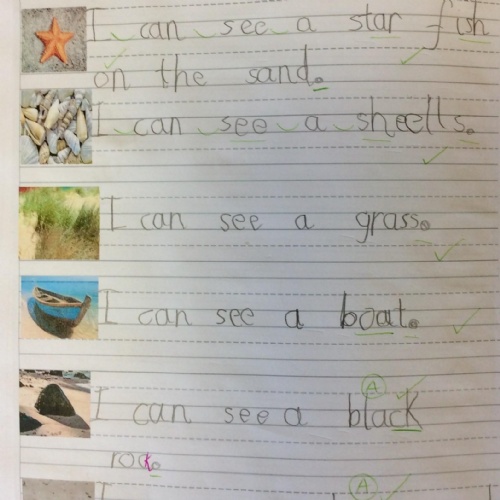 I can see a star fish
on the sand.
I can see a sheells.
I can see a grass.
I can see a boat.
A
I can see a black
rock.
A